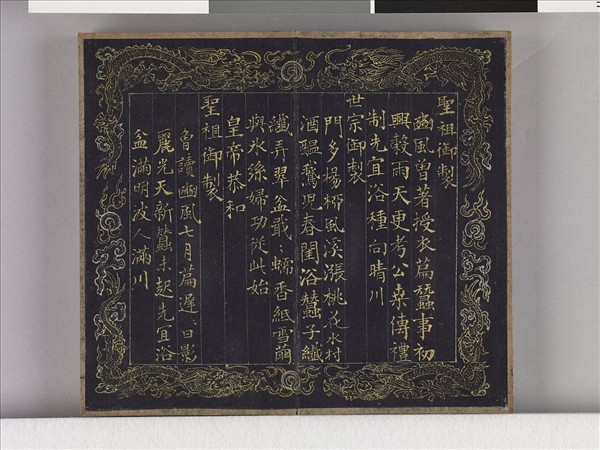 聖祖御製
豳風曾著授衣篇蠶事初
興穀雨天更考公桑傳禮
制先宜浴種向晴川
世宗御製
門多楊柳風溪漲桃花水村
酒醞鵞兒春閨浴蠶子纖
纖弄翠盆戢戢蟻香紙雪繭
與氷絲婦功從此始
皇帝恭和
聖祖御製
曾讀豳風七月篇遲遲日影
麗光天新蠶未起先宜浴
盆滿明波人滿川